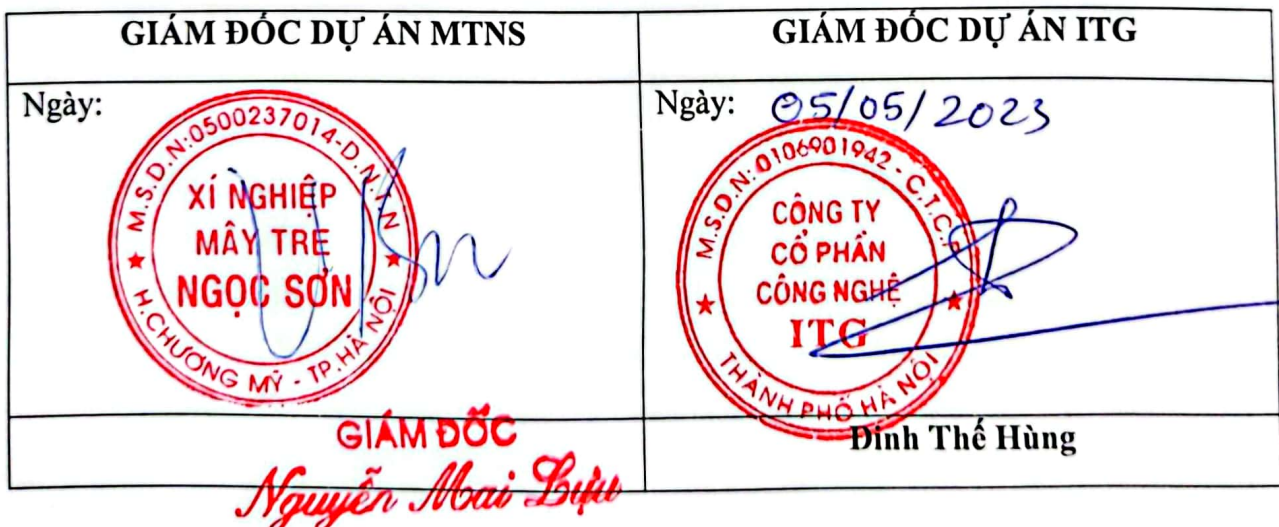 GIÁM ĐỐC DỰ ÁN MTNS
GIÁM ĐỐC DỰ ÁN ITG
Ngày:
M.S.D.N:0500237014-D.N.T.N
XÍ NGHIỆP
MÂY TRE
NGỌC SƠN
H.CHƯƠNG MỸ - TP.HÀ NỘI
Ngày: 05/05/2023
M.S.D.N: 0106901942 - C.T.C.P
CÔNG TY
CỔ PHẦN
CÔNG NGHỆ
ITG
THÀNH PHỐ HÀ NỘI
GIÁM ĐỐC
Nguyễn Mai Lựu
Đinh Thế Hùng